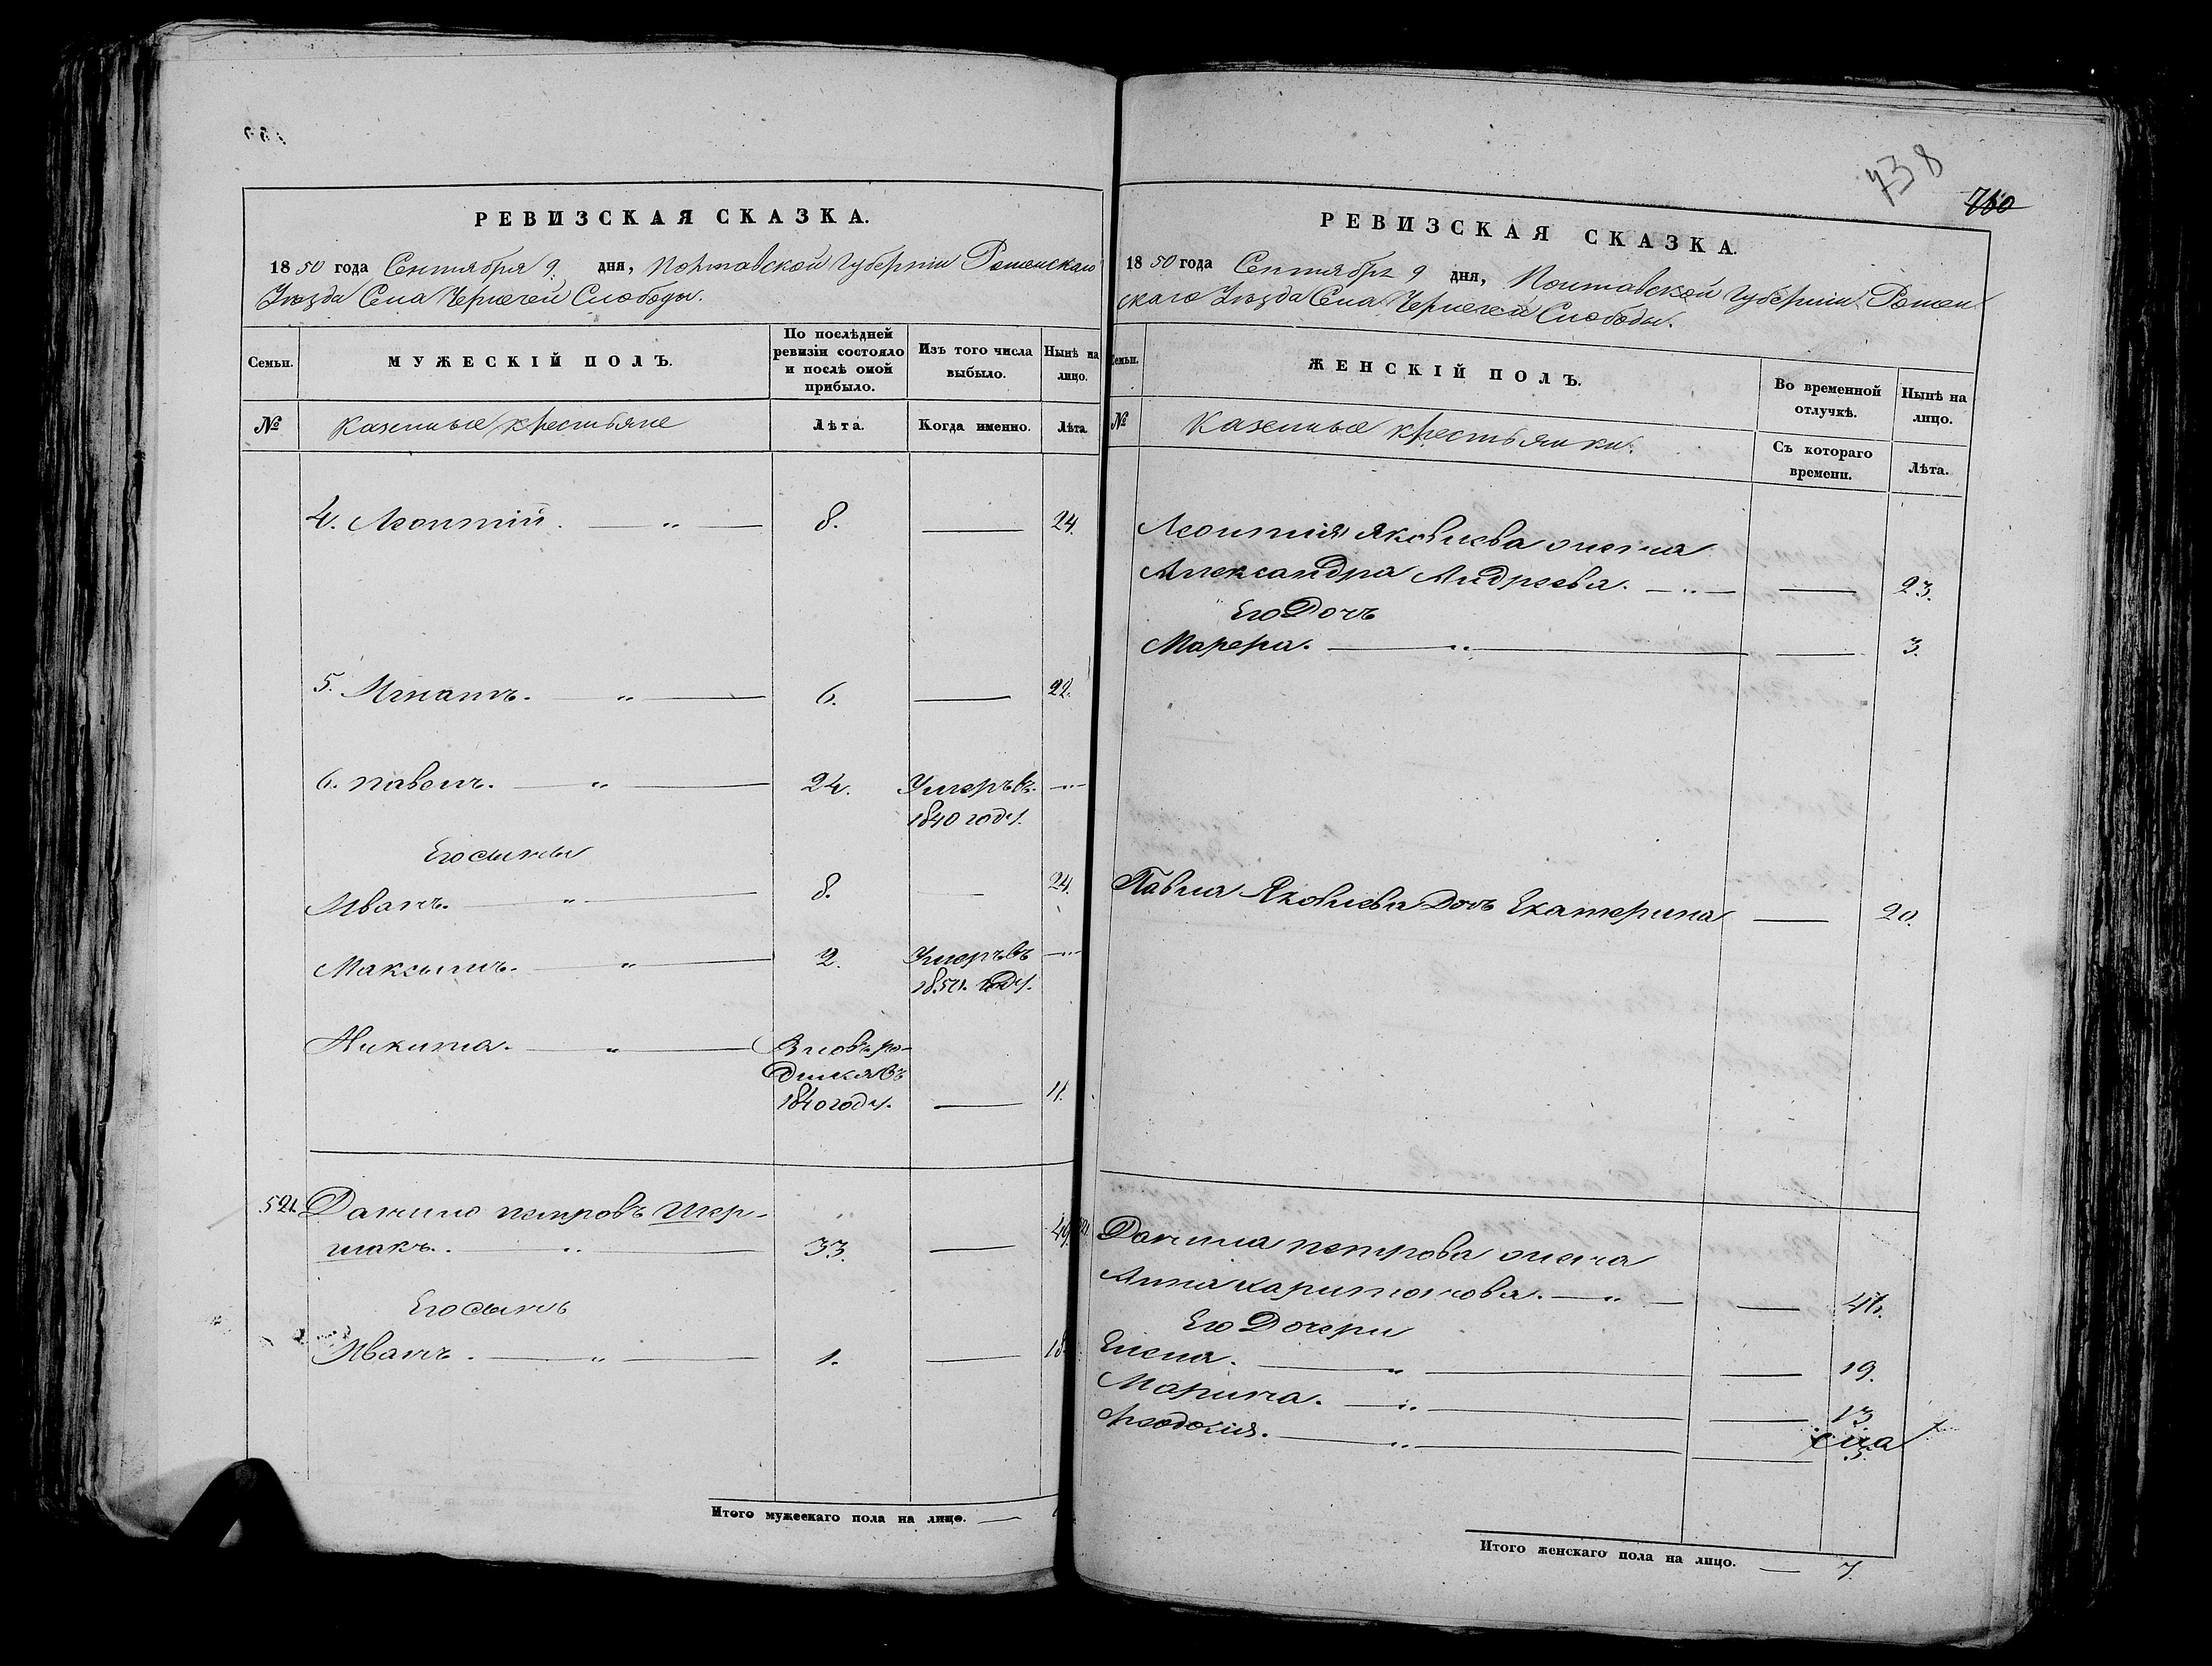 РЕВИЗСКАЯ СКАЗКА.
1850 года Сентября 9 дня, Полтавской Губерніи Роменскаго
Уѣзда Села Чернечей Слободы.
Семьи.
МУЖЕСКІЙ ПОЛЪ.
По послѣдней
ревизіи состояло
и послѣ оной
прибыло.
Изъ того числа
выбыло.
Нынѣ на
лицо.
№
Казенные крестьяне
Лѣта.
Когда именно.
Лѣта
4. Леонтій. — " — 8. — 24.
5. Игнатъ. — " — 6. — 22.
6. Павелъ. — " — 24. Умеръ въ
1840 году.
Его сыны
Иванъ. — " — 8. — 24.
Максимъ. — " — 2. Умеръ въ
1850. году.
Никита. — " — Вновь ро-
дился въ
1840 году. — 11.
521. Данило Петровъ Шер-
шакъ. — " — 33. — 49.
Его сынъ
Иванъ. — " — 1. — 18
Итого мужескаго пола на лицо. —
738
760
РЕВИЗСКАЯ СКАЗКА.
1850 года Сентября 9 дня, Полтавской Губерніи Ромен
скаго Уѣзда Села Чернечей Слободы.
Семьи.
ЖЕНСКІЙ ПОЛЪ.
Во временной
отлучкѣ.
Нынѣ на
лицо.
№
Казенные крестьянки.
Съ котораго
времени.
Лѣта.
Леонтія Яковлева жена
Александра Андреева. — " — — 23.
Его Дочь
Марфа. — " — — 3.
Павла Яковлева Дочь Екатерина — 20.
Данила Петрова жена
Анна Харитонова. — " — — 46.
Его Дочери
Елена. — " — — 19.
Марина. — " — — 13
Феодосія. — " — — 3.
Итого женскаго пола на лицо. — 7.